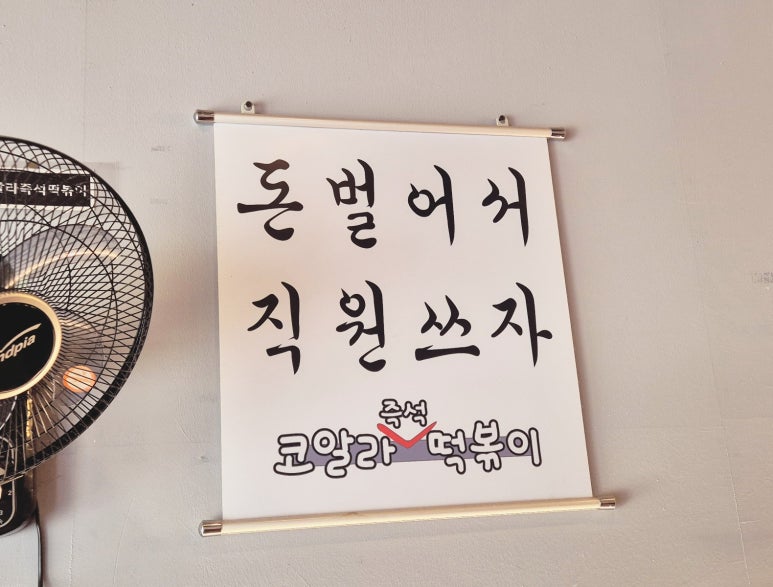 돈벌어서
직원쓰자
코알라 즉석 떡볶이
알라즉석떡볶이